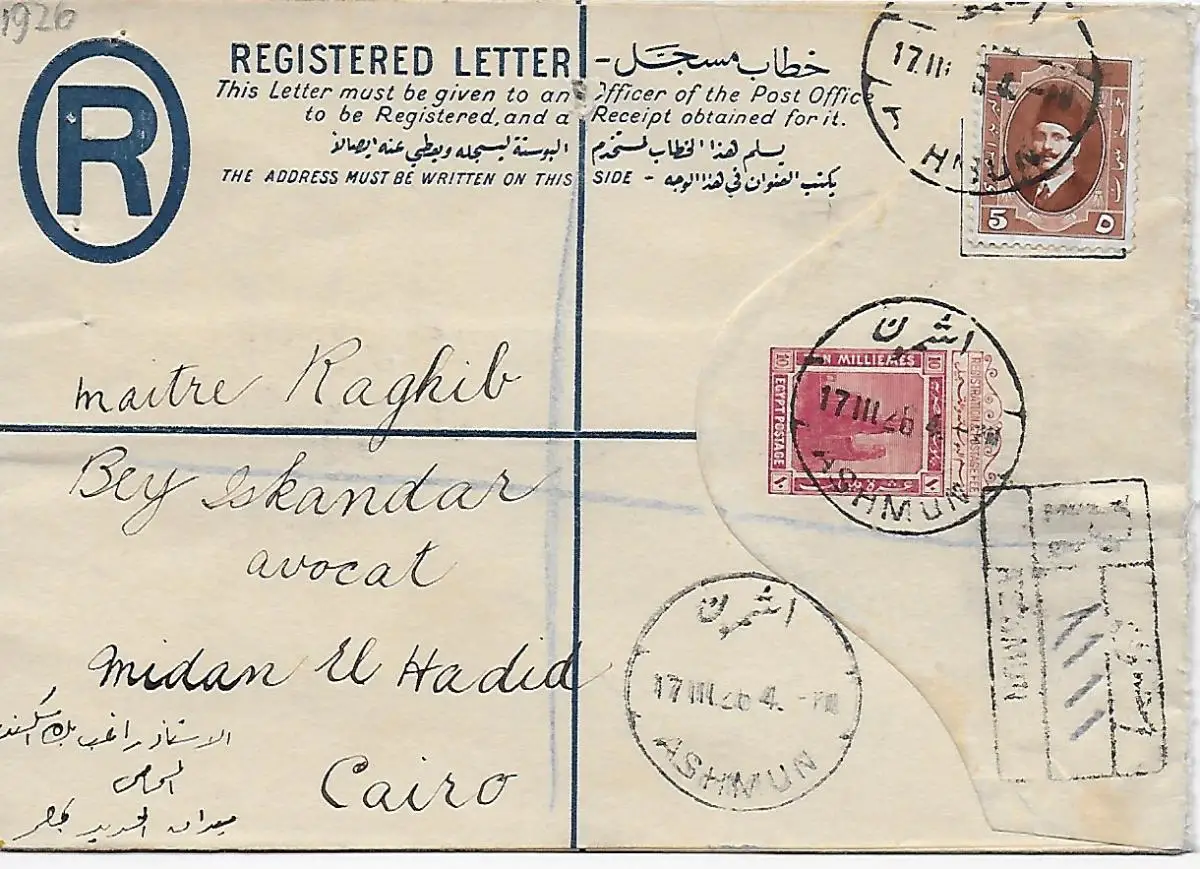 1926
R
REGISTERED LETTER - خطاب مسجل
This Letter must be given to an Officer of the Post Office
to be Registered, and a Receipt obtained for it.
يسلم هذا الخطاب لمستخدم البوستة ليسجله ويعطي عنه ايصالا
THE ADDRESS MUST BE WRITTEN ON THIS SIDE - يكتب العنوان في هذا الوجه
17 III
HMUN
5 ٥
maitre Raghib
Bey Iskandar
avocat
Midan El Hadid
Cairo
الاستاذ راغب بك اسكندر
المحامي
ميدان الحديد بمصر
10 N MILLIEMES 10
EGYPT POSTAGE
١٠
اشمون
17 III 26 4
ASHMUN
اشمون
17 III 26 4. - PM
ASHMUN
R ASHMUN